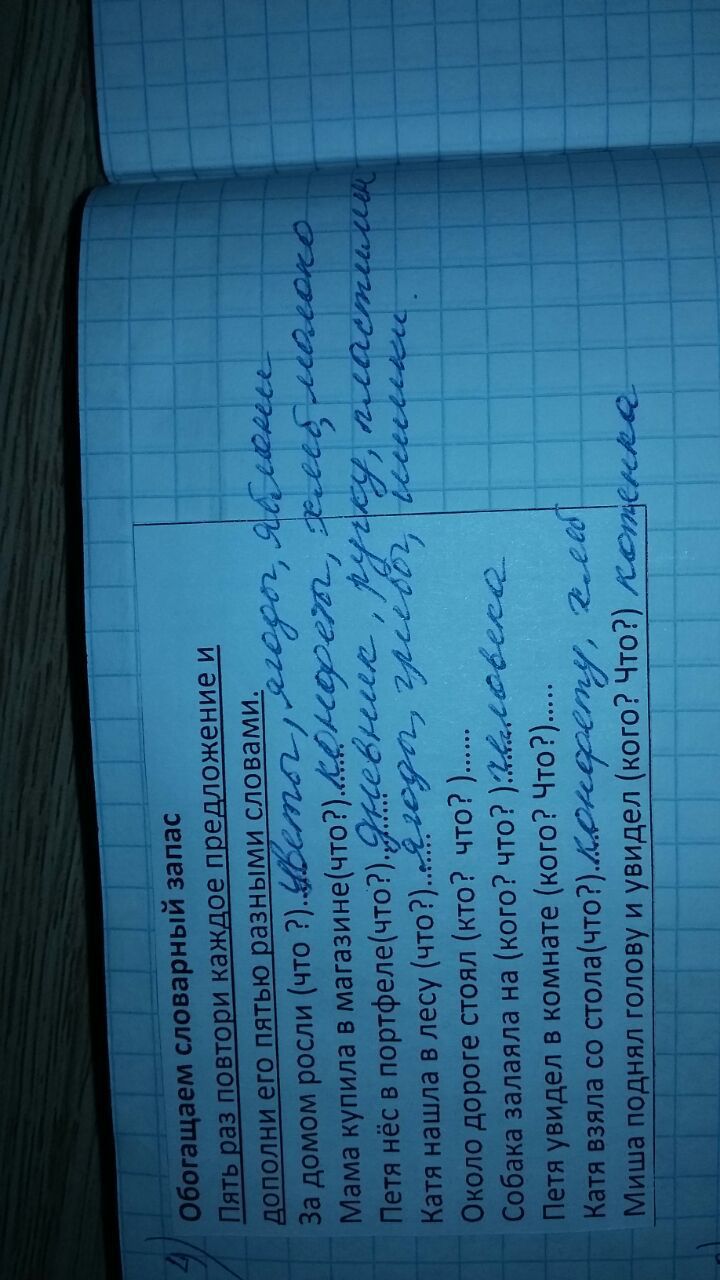 4)
Обогащаем словарный запас
Пять раз повтори каждое предложение и
дополни его пятью разными словами.
За домом росли (что ?)...... цветы, ягоды, яблони
Мама купила в магазине(что?)........ конфеты, хлеб, молоко
Петя нёс в портфеле(что?)........ дневник, ручку, пластилин
Катя нашла в лесу (что?)....... ягоды, грибы, шишки.
Около дороге стоял (кто? что? )......
Собака залаяла на (кого? что? )........ человека
Петя увидел в комнате (кого? Что?).....
Катя взяла со стола(что?)..... конфету, хлеб
Миша поднял голову и увидел (кого? Что?) котенка